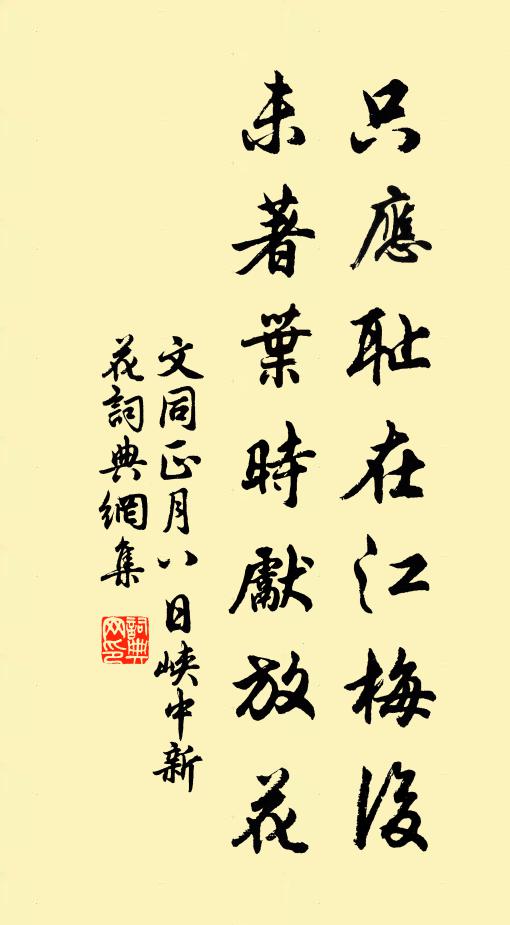 只應耻在江梅後
未著葉時獻放花
文同正月八日峽中新
花詞典網集
詞典网印